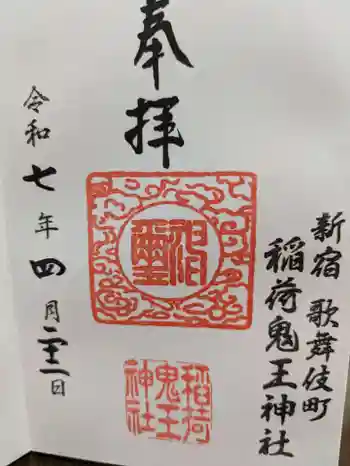 新宿 歌舞伎町
稲荷鬼王神社
奉拝
稲荷
鬼王
神社
令和七年四月二十一日